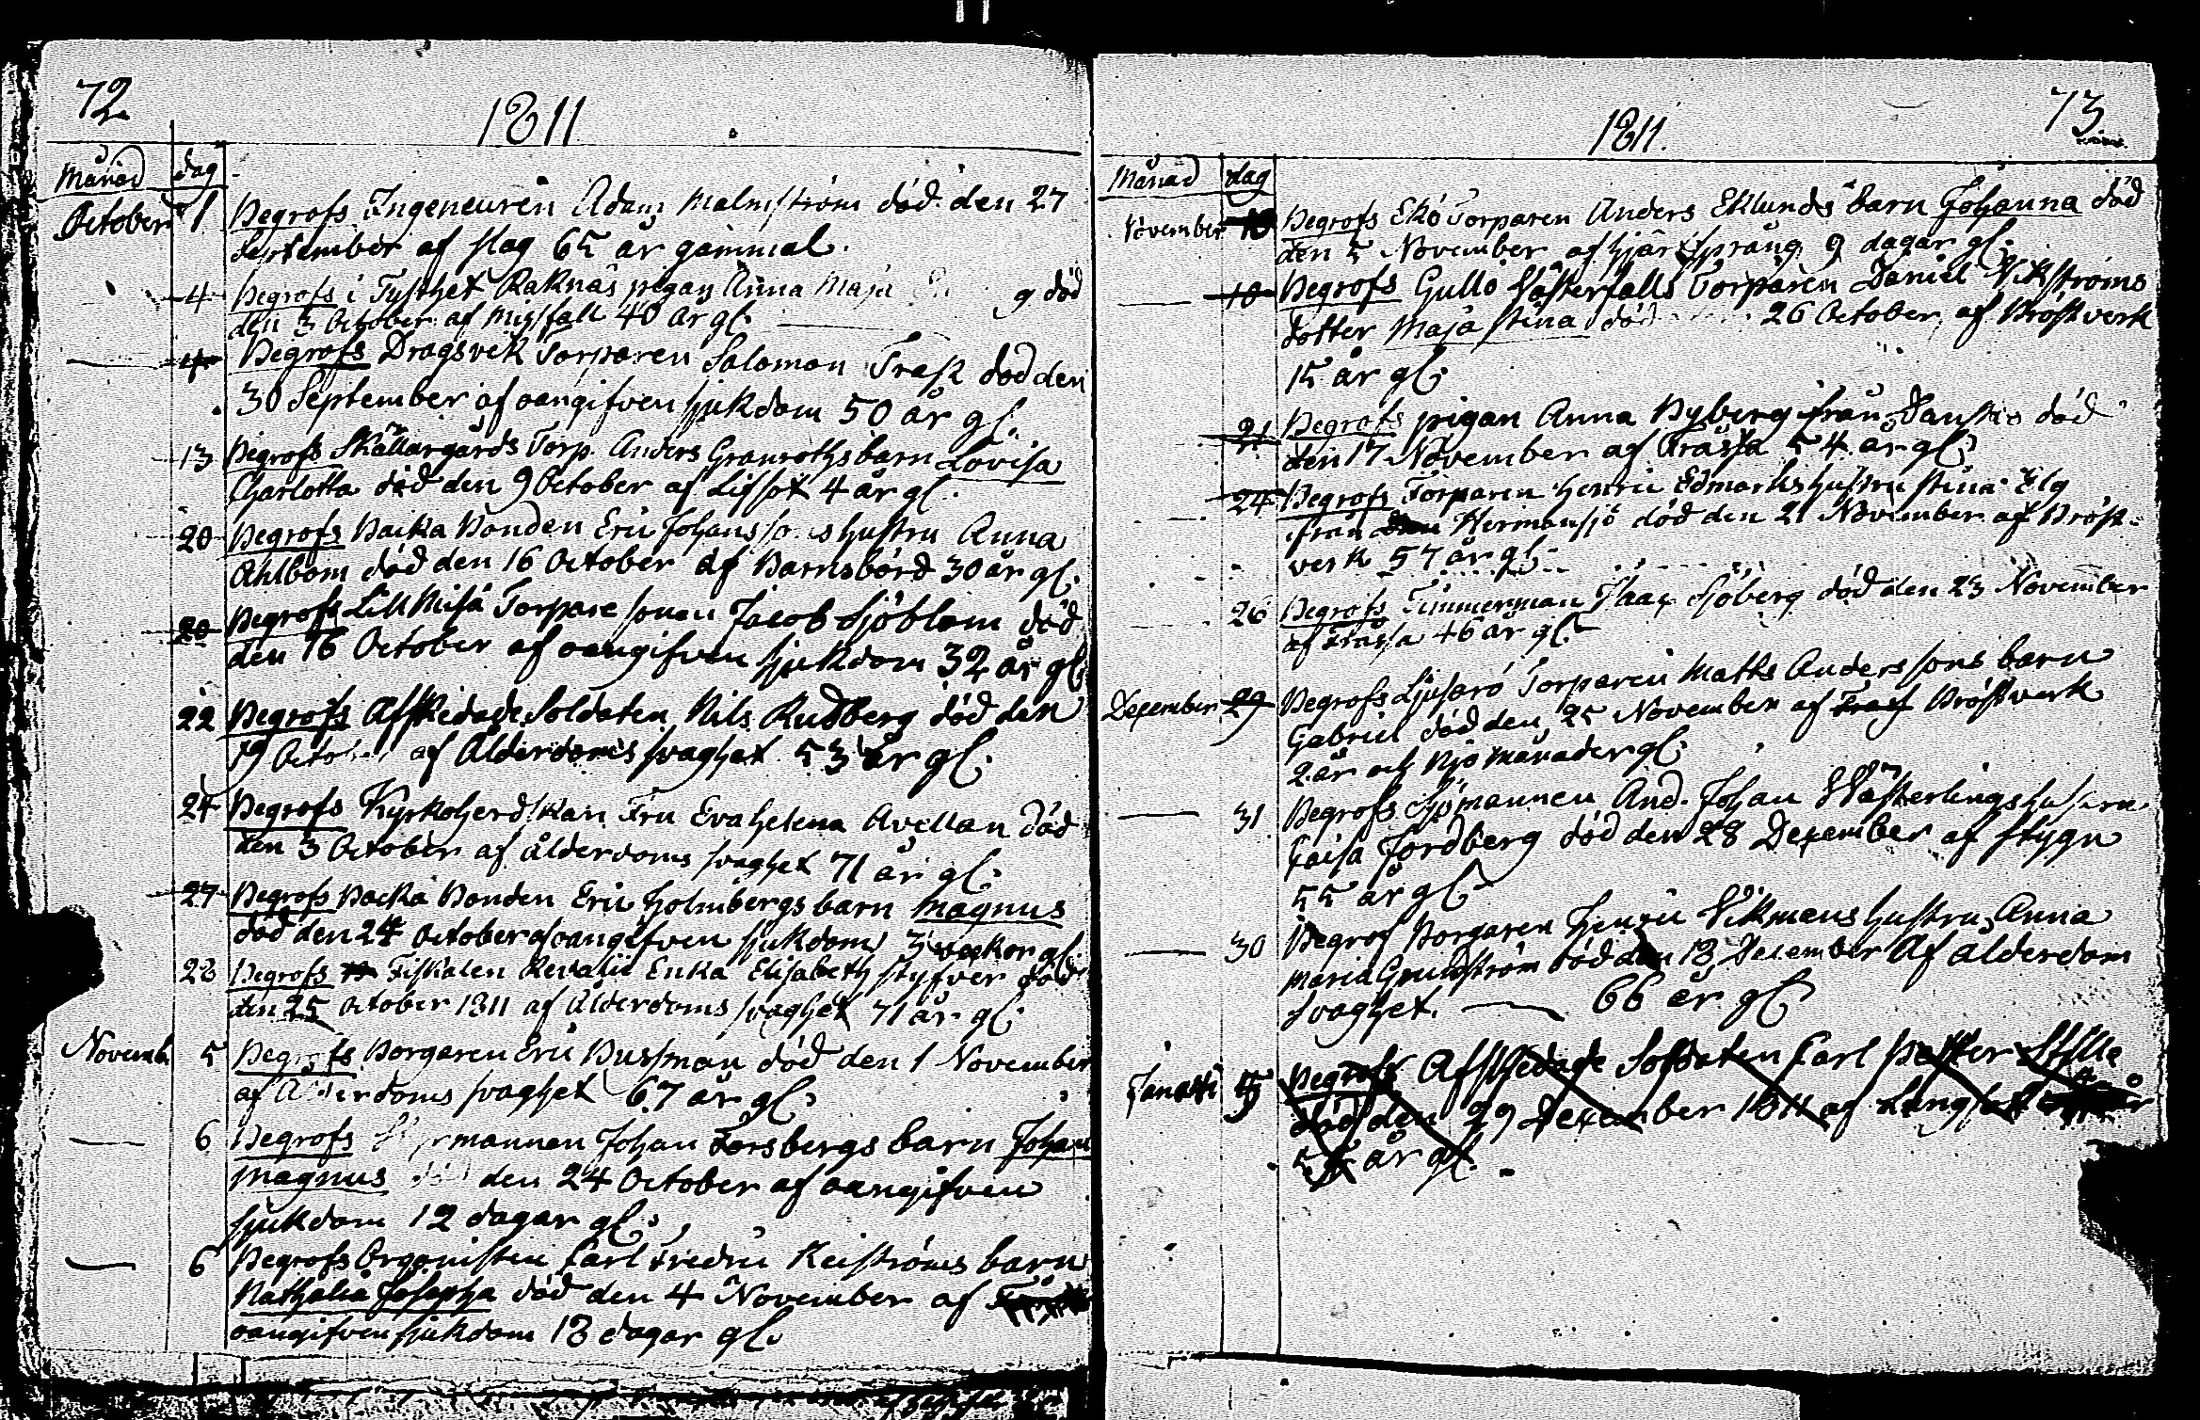 72
1811
Månad dag
October 1 Begrofs Ingeneuren Adam Malmström död den 27
September af slag 65 år gammal.
4 Begrofs i Tysthet Raknäs pigan Anna Maja död
den 3 October af Missfall 40 år gl.
4 Begrofs Dragsvik Torparen Salomon Trask död den
30 September af oangifven sjukdom 50 år gl.
13 Begrofs Skällargårds Torp. Anders Granroths barn Lovisa
Charlotta död den 9 October af Lefsot 4 år gl.
20 Begrofs Backa Bonden Eric Johanssons hustru Anna
Ahlbom död den 16 October af Barnsbörd 30 år gl.
20 Begrofs Torpare sonen Jacob Sjöblom död
den 16 October af oangifven sjukdom 32 år gl.
22 Begrofs Afskedade Soldaten Nils Rudberg död den
19 October af Ålderdoms svaghet 53 år gl.
24 Begrofs Kyrkoherdskan Fru Eva Helena Avellan död
den 3 October af ålderdoms svaghet 71 år gl.
27 Begrofs Backa Bonden Eric Holmbergs barn Magnus
död den 24 October af oangifven sjukdom 3 veckor gl.
28 Begrofs Fiskalen Enka Elisabeth Styfver död
den 25 October 1811 af Ålderdoms svaghet 71 år gl.
Novemb. 5 Begrofs Borgaren Eric Bussman död den 1 November
af Ålderdoms svaghet 67 år gl.
6 Begrofs Johan Forsbergs barn Johan
Magnus död den 24 October af oangifven
sjukdom 12 dagar gl.
6 Begrofs Organisten Carl Fredric Reiströms barn
Nathalia Josepha död den 4 November af
oangifven sjukdom 18 dagar gl.
73
1811.
Månad dag
November 10 Begrofs Ekö Torparen Anders Eklunds barn Johanna död
den 5 November af hjärtsprång 9 dagar gl.
10 Begrofs Gullö Västerfalls Torparen Daniel Vikströms
dotter Maja Stina död 26 October af Bröstverk
15 år gl.
21 Begrofs pigan Anna Nyberg från död
den 17 November af Frässa 54 år gl.
24 Begrofs Torparen Henric Edmarks hustru Stina Elg
från Hermansjö död den 21 November af Bröst-
verk 57 år gl.
26 Begrofs Timmerman Isaac Sjöberg död den 23 November
af Frässa 46 år gl.
December 29 Begrofs Torparen Matts Anderssons barn
Gabriel död den 25 November af Bröstverk
2 år och Nio månader gl.
31 Begrofs Sjömannen And. Johan Västerlings hustru
Caisa Fordberg död den 28 December af Stygn
55 år gl.
30 Begrof Borgaren Henric Vikmans hustru Anna
Maria Grundström död den 18 December Af alderdom
svaghet. 66 år gl.
5 Begrofs Afskedade Soldaten Carl Petter Stille
död den 29 December 1811 af Lungsot
år gl.